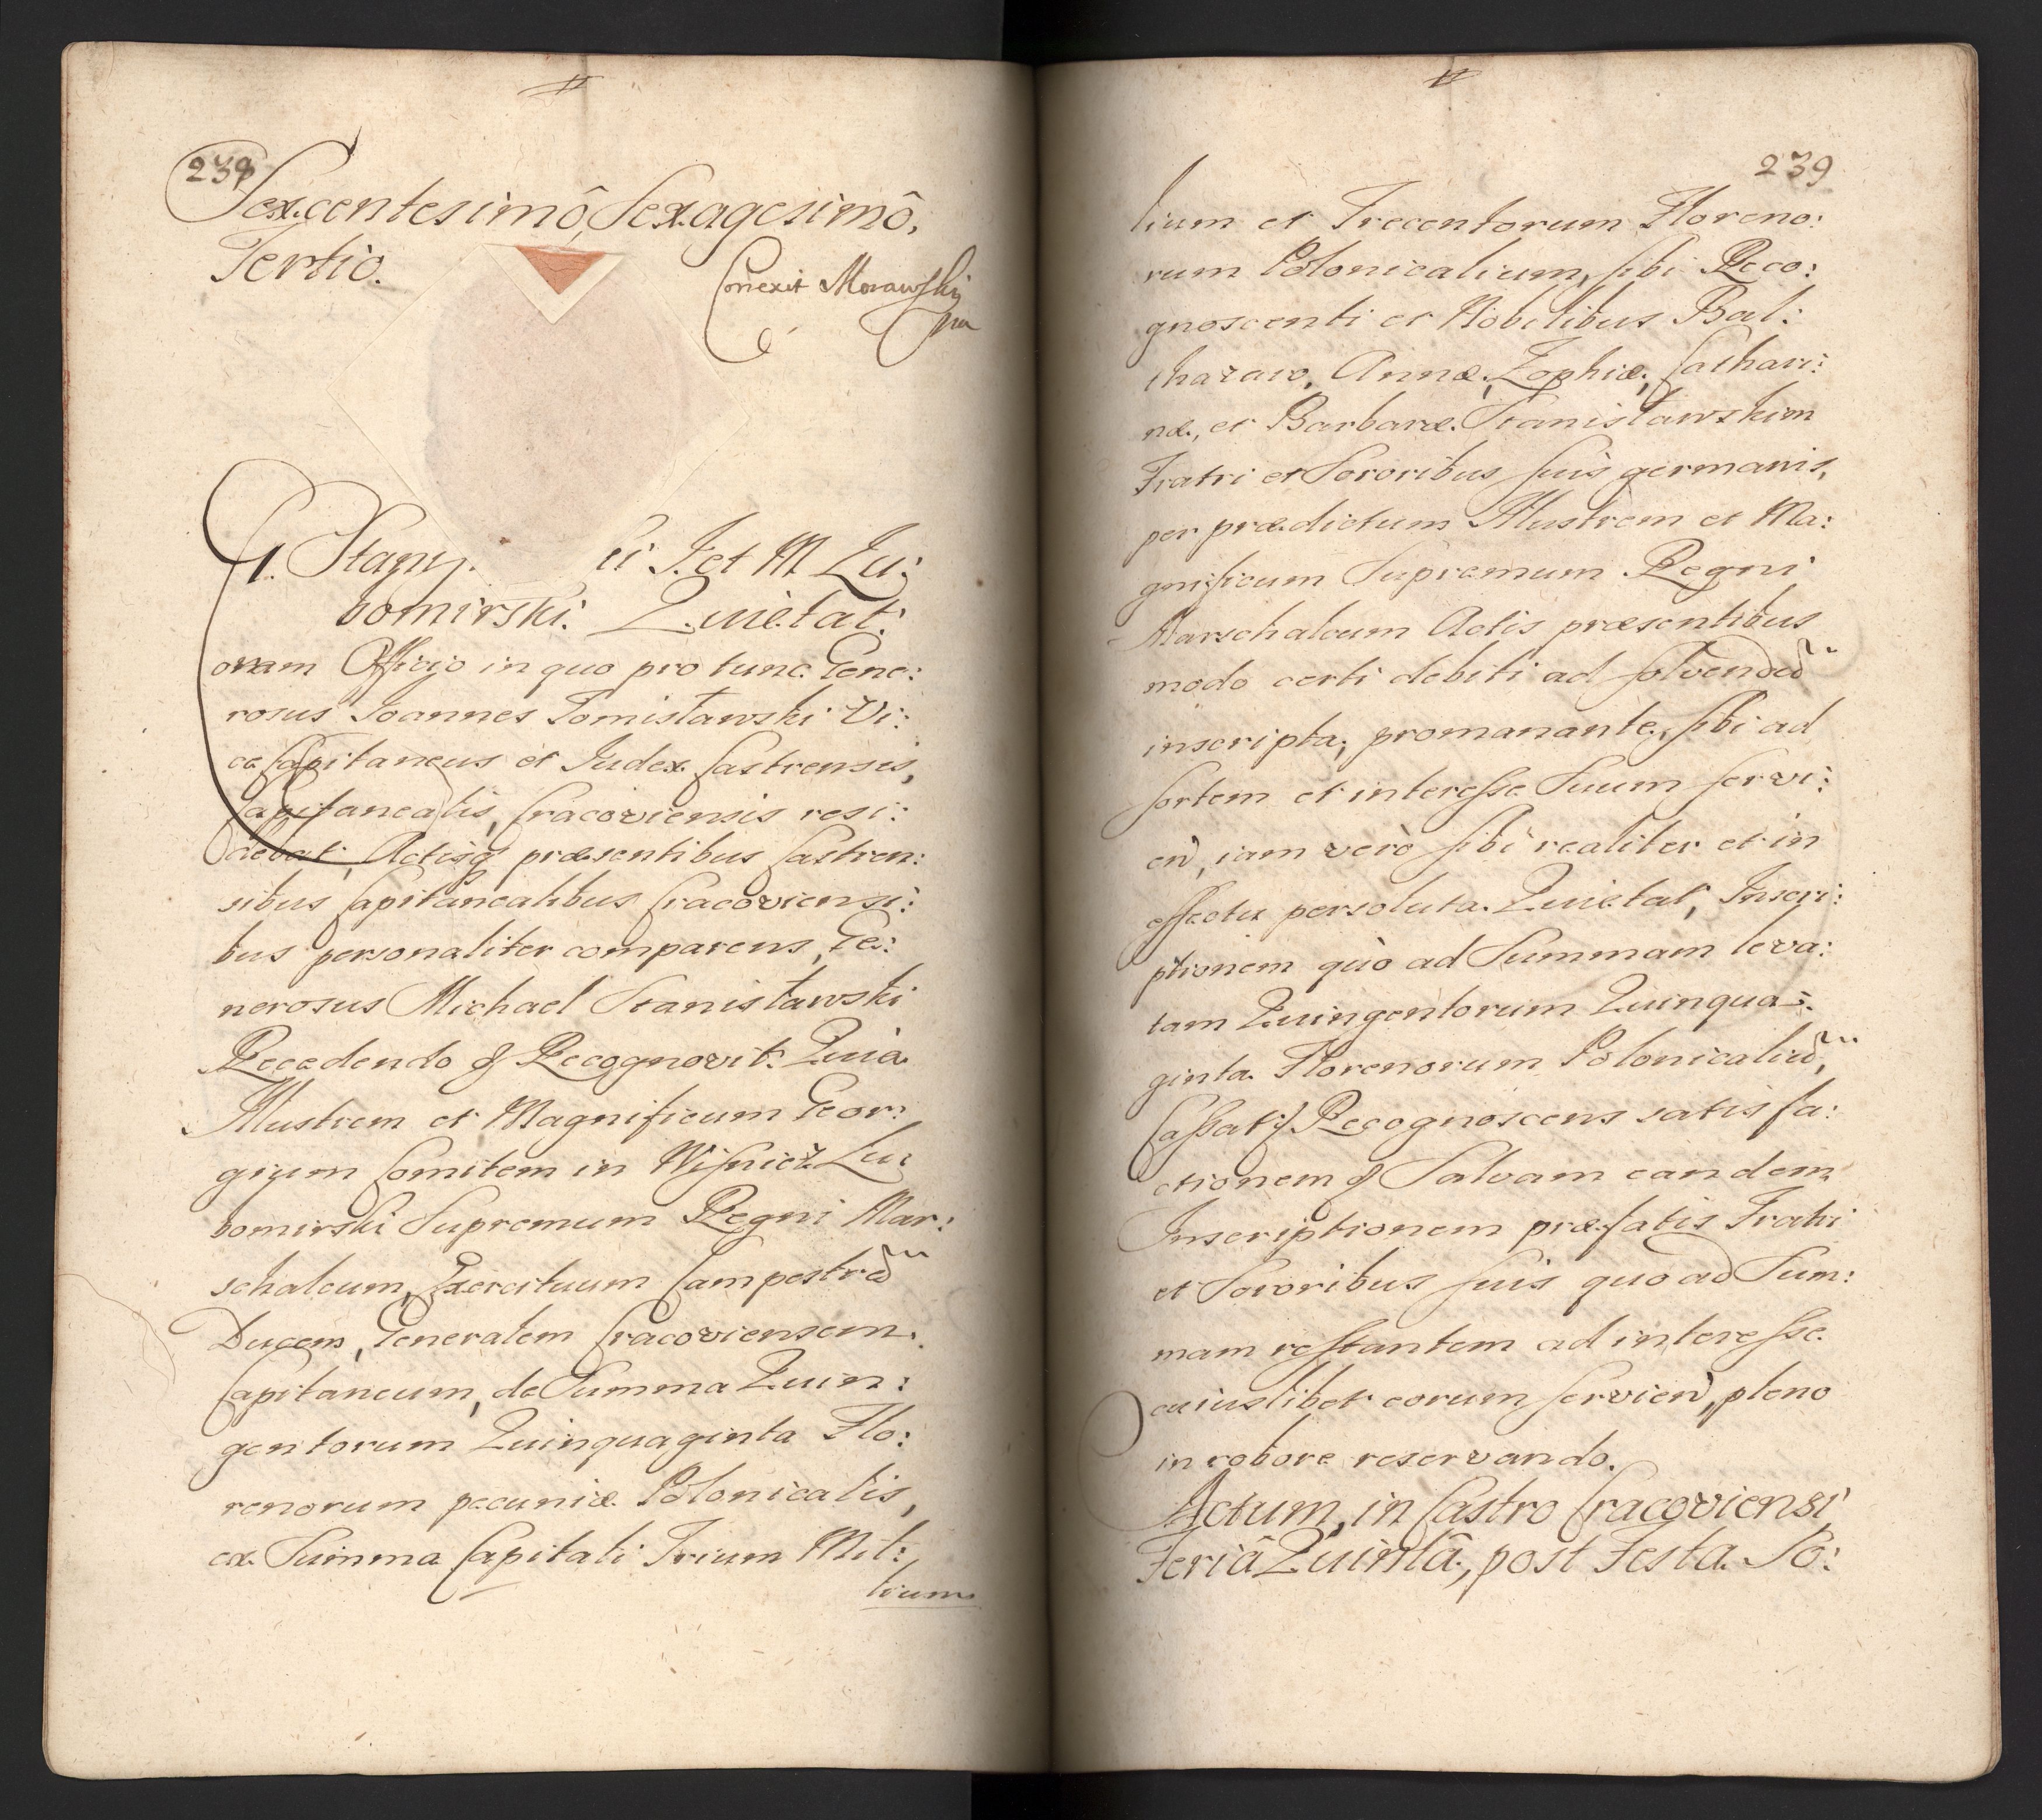 239
Sexcentesimô, Sexagesimô,
Tertio.
Correxit Morawski
mp
G. Stany. et I. et M Lu:
bomirski. Quietat.
oram Officio in quo pro tunc Gene:
rosus Joannes Tomisławski Vi:
ce Capitaneus et Judex Castrensis,
Capitanealis, Cracoviensis resi:
debat, Actisq præsentibus Castren:
sibus Capitanealibus Cracoviensi:
bus personaliter comparens, Ge:
nerosus Michael Stanisławski
Recedendo & Recognovit: Quia
Illustrem et Magnificum Geor:
gium Comitem in Wisnicz Lu:
bomirski Supremum Regni Mar:
schalcum, Exercituum Campestrũ
Ducem, Generalem Cracoviensem,
Capitaneum, de Summa Quin:
gentorum Quinquaginta Flo:
renorum pecuniæ Polonicalis,
ex Summa Capitali Trium Mil:
lium
239
lium et Trecentorum Floreno:
rum Polonicalium, sibi Reco:
gnoscenti et Nobilibus Bal:
thazaro, Annæ, Zophiæ, Cathari:
næ, et Barbaræ Stanisławskim
Fratri et Sororibus suis germanis,
per prædictum Illustrem et Ma:
gnificum Supremum Regni
Marschalcum Actis præsentibus
modo certi debiti ad solvendũ
inscripta, promanante, sibi ad
sortem et interesse Suum servi:
eñ, iam verò sibi realiter et in
effectu persoluta. Quietat, Inscri:
ptionem quò ad Summam leva:
tam Quingentorum Quinqua:
ginta Florenorum Polonicaliũ,
Cassat & Recognoscens satisfa:
ctionem & Salvam eandem
Inscriptionem præfatis Fratri
et Sororibus suis quo ad Sum:
mam restantem ad interesse
cuiuslibet eorum servieñ, pleno
in robore reservando.
Actum, in Castro Cracoviensi
Feriâ Quintâ, post Festa So: